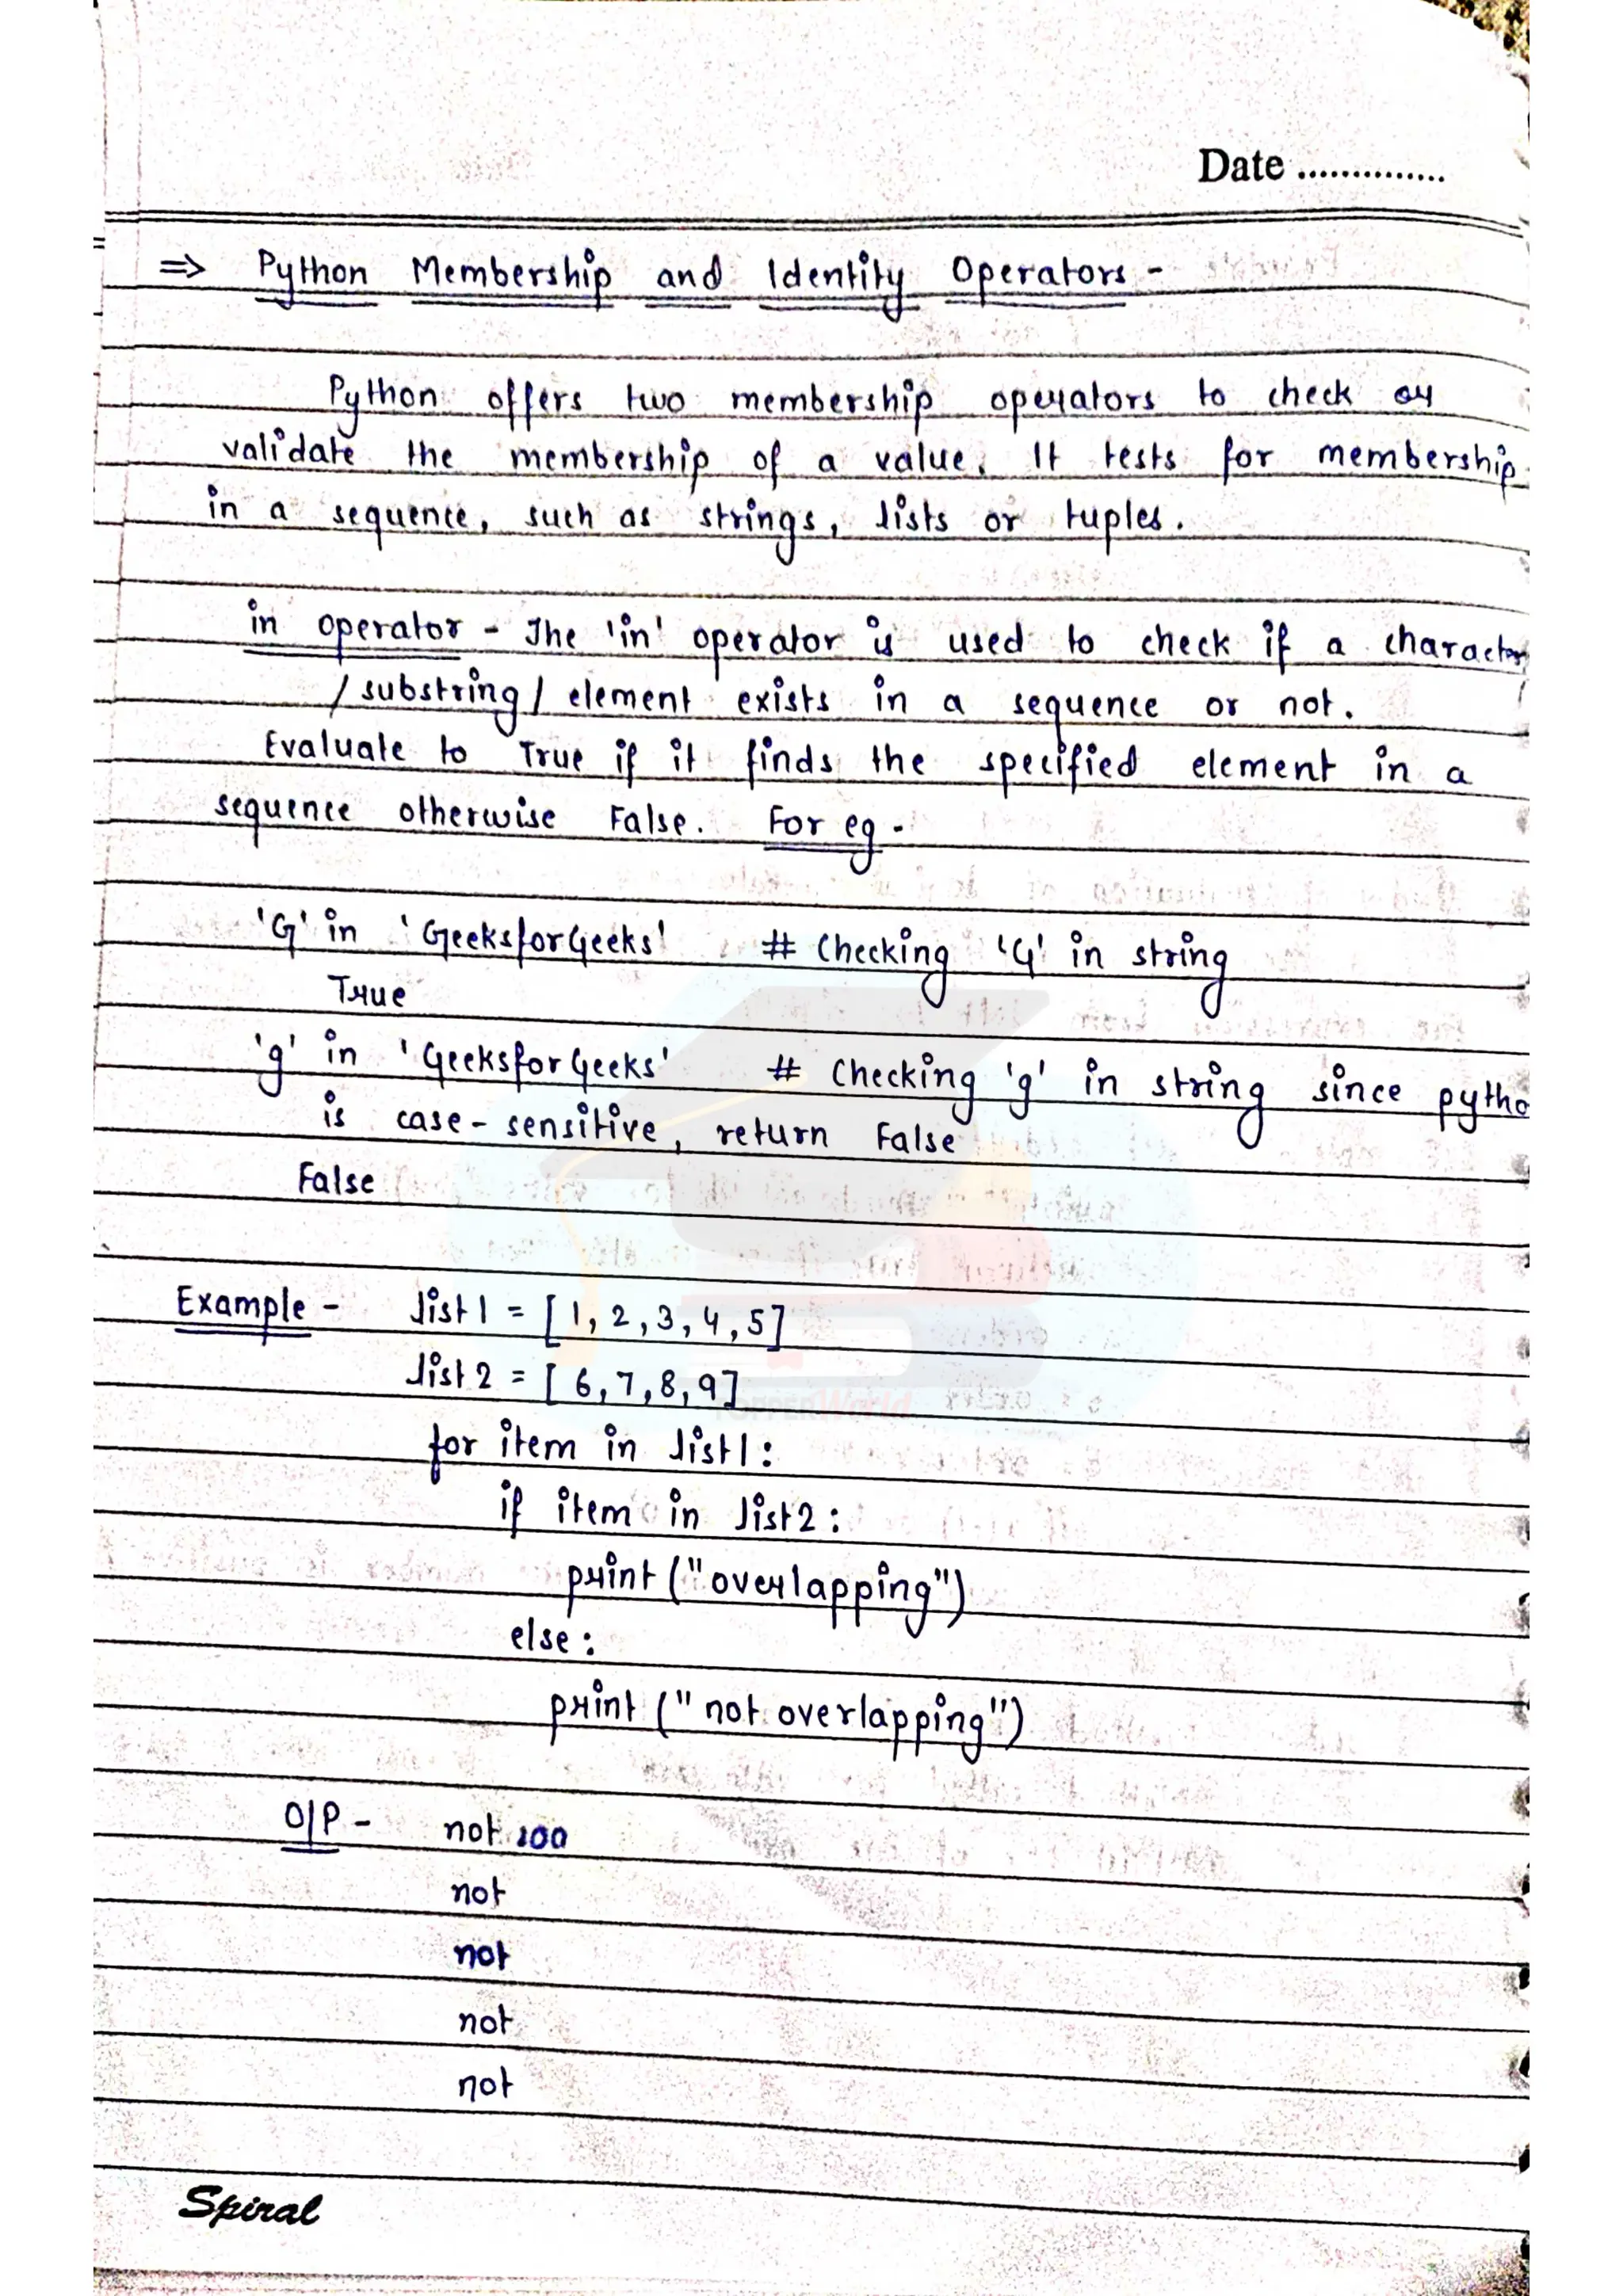 Date ..............
=> Python Membership and Identity Operators -
Python offers two membership operators to check or
validate the membership of a value. It tests for membership
in a sequence, such as strings, lists or tuples.
in operator - The 'in' operator is used to check if a character
/ substring / element exists in a sequence or not.
Evaluate to True if it finds the specified element in a
sequence otherwise False. For eg -
'G' in 'GeeksforGeeks' # Checking 'G' in string
True
'g' in 'GeeksforGeeks' # Checking 'g' in string since pytho
is case-sensitive, return False
False
Example - list1 = [1, 2, 3, 4, 5]
list2 = [6, 7, 8, 9]
TOPPERWorld
for item in list1:
if item in list2:
print ("overlapping")
else:
print ("not overlapping")
O/P - not
not
not
not
not
Spiral